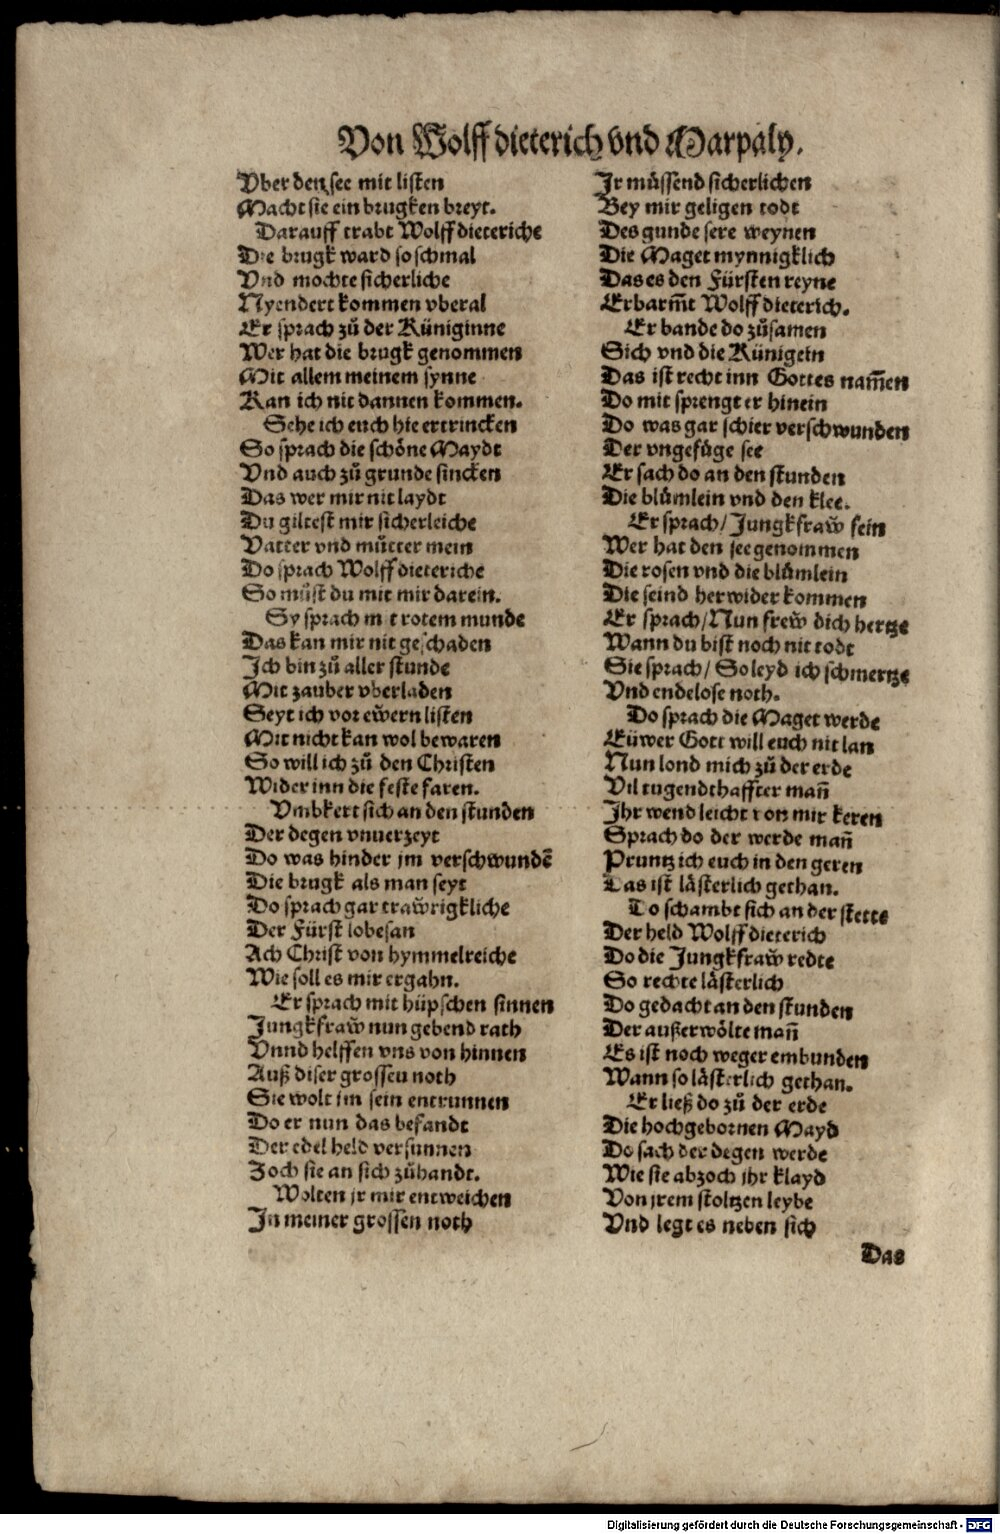 Von Wolff dieterich vnd Marpaly.
Vber den see mit listen
Macht sie ein brugken breyt.
Darauff trabt Wolff dieteriche
Die brugk ward so schmal
Vnd mochte sicherliche
Nyendert kommen vberal
Er sprach zů der Küniginne
Wer hat die brugk genommen
Mit allem meinem synne
Kan ich nit dannen kommen.
Sehe ich euch hie ertrincken
So sprach die schöne Maydt
Vnd auch zů grunde sincken
Das wer mir nit laydt
Du giltest mir sicherleiche
Vatter vnd můtter mein
Do sprach Wolff dieteriche
So můst du mit mir darein.
Sy sprach mit rotem munde
Das kan mir nit geschaden
Ich bin zů aller stunde
Mit zauber vberladen
Seyt ich vor ewern listen
Mit nicht kan wol bewaren
So will ich zů den Christen
Wider inn die feste faren.
Vmbkert sich an den stunden
Der degen vnuerzeyt
Do was hinder jm verschwundē
Die brugk als man seyt
Do sprach gar trawrigkliche
Der Fürst lobesan
Ach Christ von hymmelreiche
Wie soll es mir ergahn.
Er sprach mit hüpschen sinnen
Jungkfraw nun gebend rath
Vnnd helffen vns von hinnen
Auß diser grossen noth
Sie wolt jm sein entrunnen
Do er nun das befandt
Der edel held versunnen
Zoch sie an sich zůhandt.
Wolten jr mir entweichen
In meiner grossen noth
Ir müssend sicherlichen
Bey mir geligen todt
Des gunde sere weynen
Die Maget mynnigklich
Das es den Fürsten reyne
Erbarm̄t Wolff dieterich.
Er bande do zůsamen
Sich vnd die Künigein
Das ist recht inn Gottes nam̄en
Do mit sprengt er hinein
Do was gar schier verschwunden
Der vngefüge see
Er sach do an den stunden
Die blůmlein vnd den klee.
Er sprach/ Jungkfraw fein
Wer hat den see genommen
Die rosen vnd die blůmlein
Die seind herwider kommen
Er sprach/ Nun frew dich hertze
Wann du bist noch nit todt
Sie sprach/ So leyd ich schmertze
Vnd endelose noth.
Do sprach die Maget werde
Eüwer Gott will euch nit lan
Nun lond mich zů der erde
Vil tugendthaffter mañ
Ihr wend leicht von mir keren
Sprach do der werde mañ
Pruntz ich euch in den geren
Das ist lästerlich gethan.
Do schambt sich an der stette
Der held Wolff dieterich
Do die Jungkfraw redte
So rechte lästerlich
Do gedacht an den stunden
Der außerwölte mañ
Es ist noch weger embunden
Wann so lästerlich gethan.
Er ließ do zů der erde
Die hochgebornen Mayd
Do sach der degen werde
Wie sie abzoch jhr klayd
Von jrem stoltzen leybe
Vnd legt es neben sich
Das
Digitalisierung gefördert durch die Deutsche Forschungsgemeinschaft - DFG